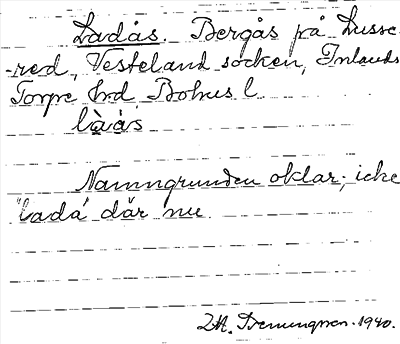 Ladås. Bergås på Lusse-
-red, Västerland socken, Inlands
Torpe hrd Bohus l
làås
Namngrunden oklar, icke
"lada" där nu
1940.